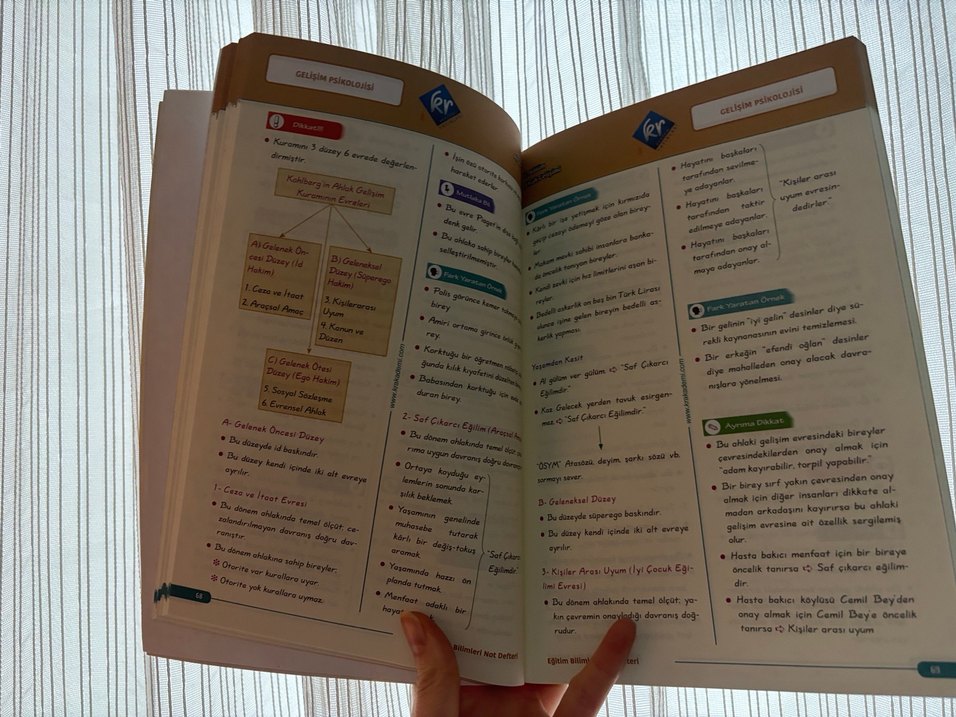 GELİŞİM PSİKOLOJİSİ
kr
Dikkat!!!
• Kuramını 3 düzey 6 evrede değerlen-
dirmiştir.
Kohlberg'in Ahlak Gelişim
Kuramının Evreleri
A) Gelenek Ön-
cesi Düzey (İd
Hakim)
1. Ceza ve İtaat
2. Araçsal Amaç
B) Geleneksel
Düzey (Süperego
Hakim)
3. Kişilerarası
Uyum
4. Kanun ve
Düzen
C) Gelenek Ötesi
Düzey (Ego Hakim)
5. Sosyal Sözleşme
6. Evrensel Ahlak
A- Gelenek Öncesi Düzey
• Bu düzeyde id baskındır.
• Bu düzey kendi içinde iki alt evreye
ayrılır.
1- Ceza ve İtaat Evresi
• Bu dönem ahlakında temel ölçüt; ce-
zalandırılmayan davranış doğru dav-
ranıştır.
• Bu dönem ahlakına sahip bireyler;
* Otorite var kurallara uyar.
* Otorite yok kurallara uymaz.
68
www.krakademi.com
• İşin özü otorite
hareket ederler
Mutlaka Bil
• Bu evre Piaget'in dışa
denk gelir.
• Bu ahlaka sahip bireyler
selleştirilmemiştir.
Fark Yaratan Örnek
• Polis görünce kemer
birey
• Amiri ortama girince
ey.
• Korktuğu bir öğretmen
ğunda kılık kıyafetini
• Babasından korktuğu için
duran birey.
2- Saf Çıkarcı Eğilim (Araçsal
• Bu dönem ahlakında temel ölçüt
rıma uygun davranış doğru
• Ortaya koyduğu ey-
lemlerin sonunda kar-
şılık beklemek.
• Yaşamının genelinde
muhasebe tutarak
kârlı bir değiş-tokuş
aramak.
• Yaşamında hazzı ön
planda tutmak.
• Menfaat odaklı bir
"Saf Çıkarcı
Eğilimdir."
Bilimleri Not Defteri
kr
GELİŞİM PSİKOLOJİSİ
Fark Yaratan Örnek
• Kârlı bir işe yetişmek için kırmızıda
geçip cezayı ödemeyi göze alan birey-
ler.
• Makam mevki sahibi insanlara banka-
da öncelik tanıyan bireyler.
• Kendi zevki için hız limitlerini aşan bi-
reyler.
• Bedelli askerlik on beş bin Türk Lirası
olunca işine gelen bireyin bedelli as-
kerlik yapması.
Yaşamdan Kesit
• Al gülüm ver gülüm. ➪ "Saf Çıkarcı
Eğilimdir."
• Kaz Gelecek yerden tavuk esirgen-
mez ➪ "Saf Çıkarcı Eğilimdir."
"ÖSYM" Atasözü, deyim, şarkı sözü vb.
sormayı sever.
B- Geleneksel Düzey
• Bu düzeyde süperego baskındır.
• Bu düzey kendi içinde iki alt evreye
ayrılır.
3- Kişiler Arası Uyum (İyi Çocuk Eği-
limi Evresi)
• Bu dönem ahlakında temel ölçüt, ya-
kın çevremin onayladığı davranış doğ-
rudur.
Eğitim Bilimleri
www.krakademi.com
• Hayatını başkaları
tarafından sevilme-
ye adayanlar.
• Hayatını başkaları
tarafından taktir
edilmeye adayanlar.
• Hayatını başkaları
tarafından onay al-
maya adayanlar.
"Kişiler arası
uyum evresin-
dedirler."
Fark Yaratan Örnek
• Bir gelinin "iyi gelin" desinler diye sü-
rekli kaynanasının evini temizlemesi.
• Bir erkeğin "efendi oğlan" desinler
diye mahalleden onay alacak davra-
nışlara yönelmesi.
Ayrıma Dikkat
• Bu ahlaki gelişim evresindeki bireyler
çevresindekilerden onay almak için
"adam kayırabilir, torpil yapabilir."
• Bir birey sırf yakın çevresinden onay
almak için diğer insanları dikkate al-
madan arkadaşını kayırırsa bu ahlaki
gelişim evresine ait özellik sergilemiş
olur.
• Hasta bakıcı menfaat için bir bireye
öncelik tanırsa ➪ Saf çıkarcı eğilim-
dir.
• Hasta bakıcı köylüsü Cemil Bey'den
onay almak için Cemil Bey'e öncelik
tanırsa ➪ Kişiler arası uyum